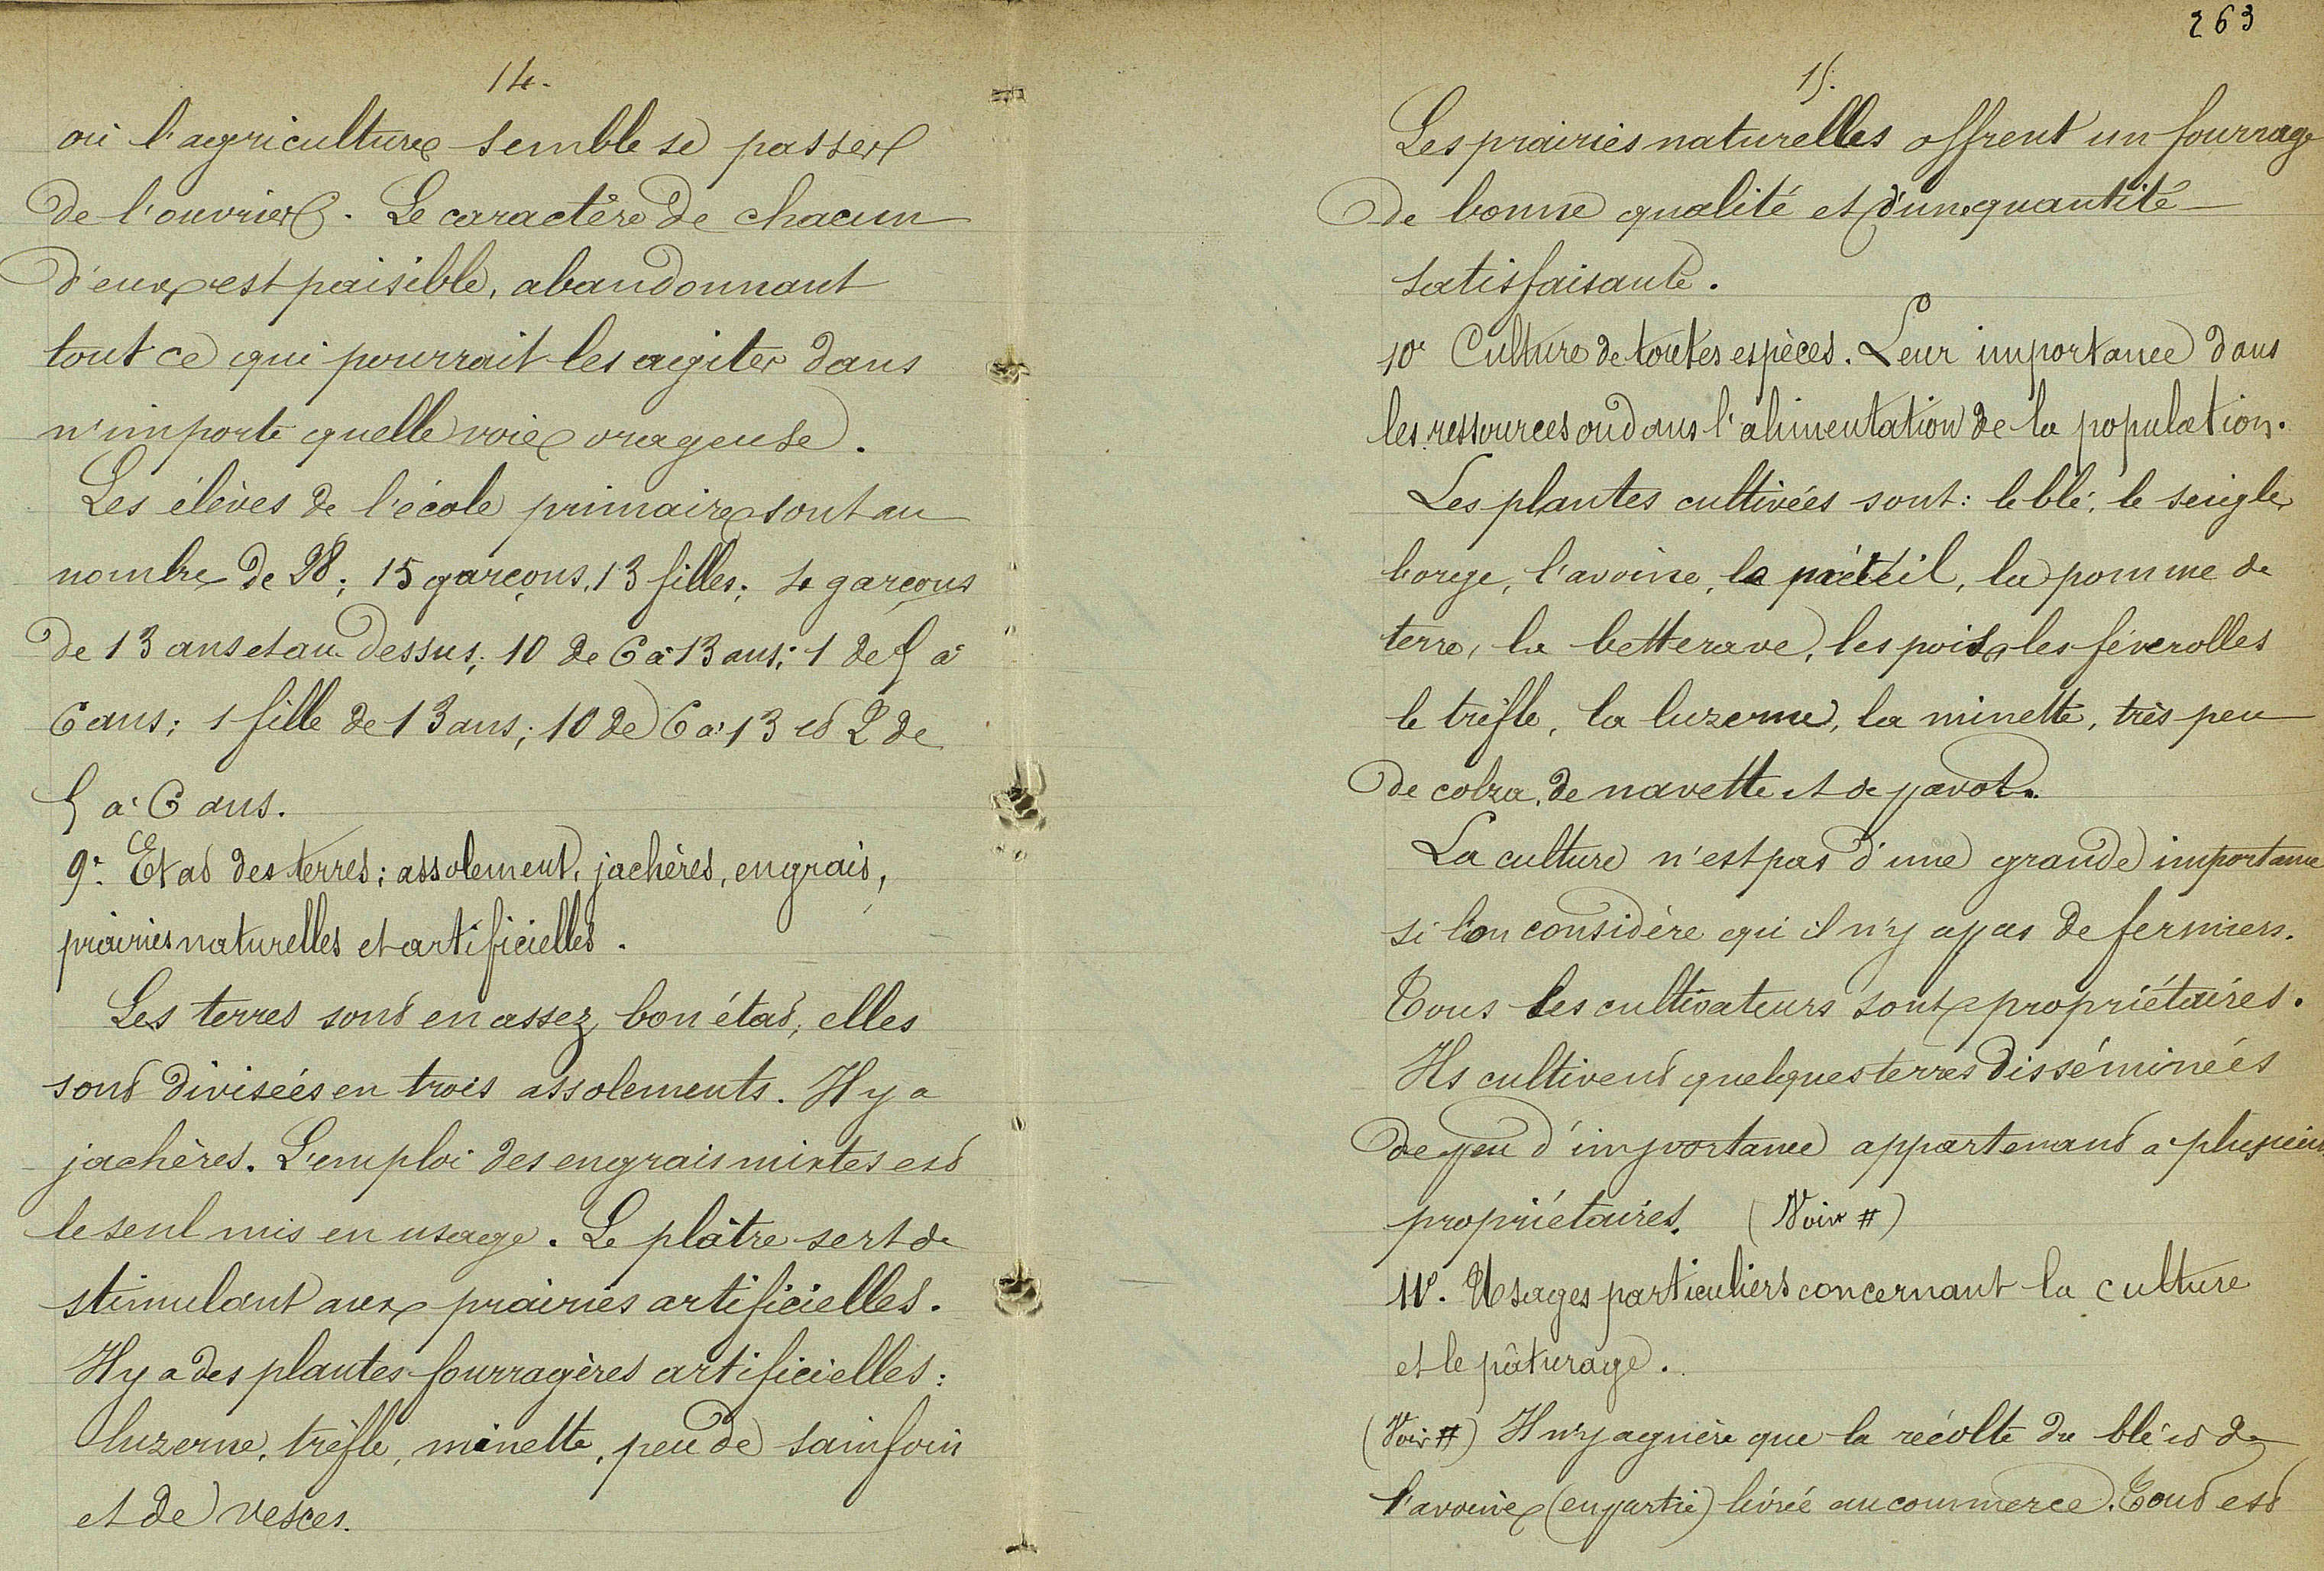 14.
où l'agriculture semble se passer
de l'ouvrier. Le caractère de chacun
d'eux est paisible, abandonnant
tout ce qui pourrait les agiter dans
n'importe quelle voie orageuse.
Les élèves de l'école primaire sont au
nombre de 28; 15 garçons, 13 filles; 4 garçons
de 13 ans et au dessus; 10 de 6 à 13 ans; 1 de 5 à
6 ans; 1 fille de 13 ans; 10 de 6 à 13 et 2 de
5 à 6 ans.
9° Etat des terres; assolement, jachères, engrais,
prairies naturelles et artificielles.
Les terres sont en assez bon état; elles
sont divisées en trois assolements. Il y a
jachères. L'emploi des engrais mixtes est
le seul mis en usage. Le plâtre sert de
stimulant aux prairies artificielles.
Il y a des plantes fourragères artificielles:
luzerne, trèfle, minette, peu de sainfoin
et de vesces.
263
15.
Les prairies naturelles offrent un fourrage
de bonne qualité et d'une quantité
satisfaisante.
10° Culture de toutes espèces. Leur importance dans
les ressources ou dans l'alimentation de la population.
Les plantes cultivées sont: le blé, le seigle
l'orge, l'avoine, le méteil, la pomme de
terre, la betterave, les pois, les féverolles
le trèfle, la luzerne, la minette, très peu
de colza, de navette et de pavot.
La culture n'est pas d'une grande importance
si l'on considère qu'il n'y a pas de fermiers.
Tous les cultivateurs sont propriétaires.
Ils cultivent quelques terres disséminées
de peu d'importance appartenant à plusieurs
propriétaires. (Voir #)
11°. Usages particuliers concernant la culture
et le pâturage.
(Voir #) Il n'y a guère que la récolte du blé et de
l'avoine (en partie) livrée au commerce. Tout est